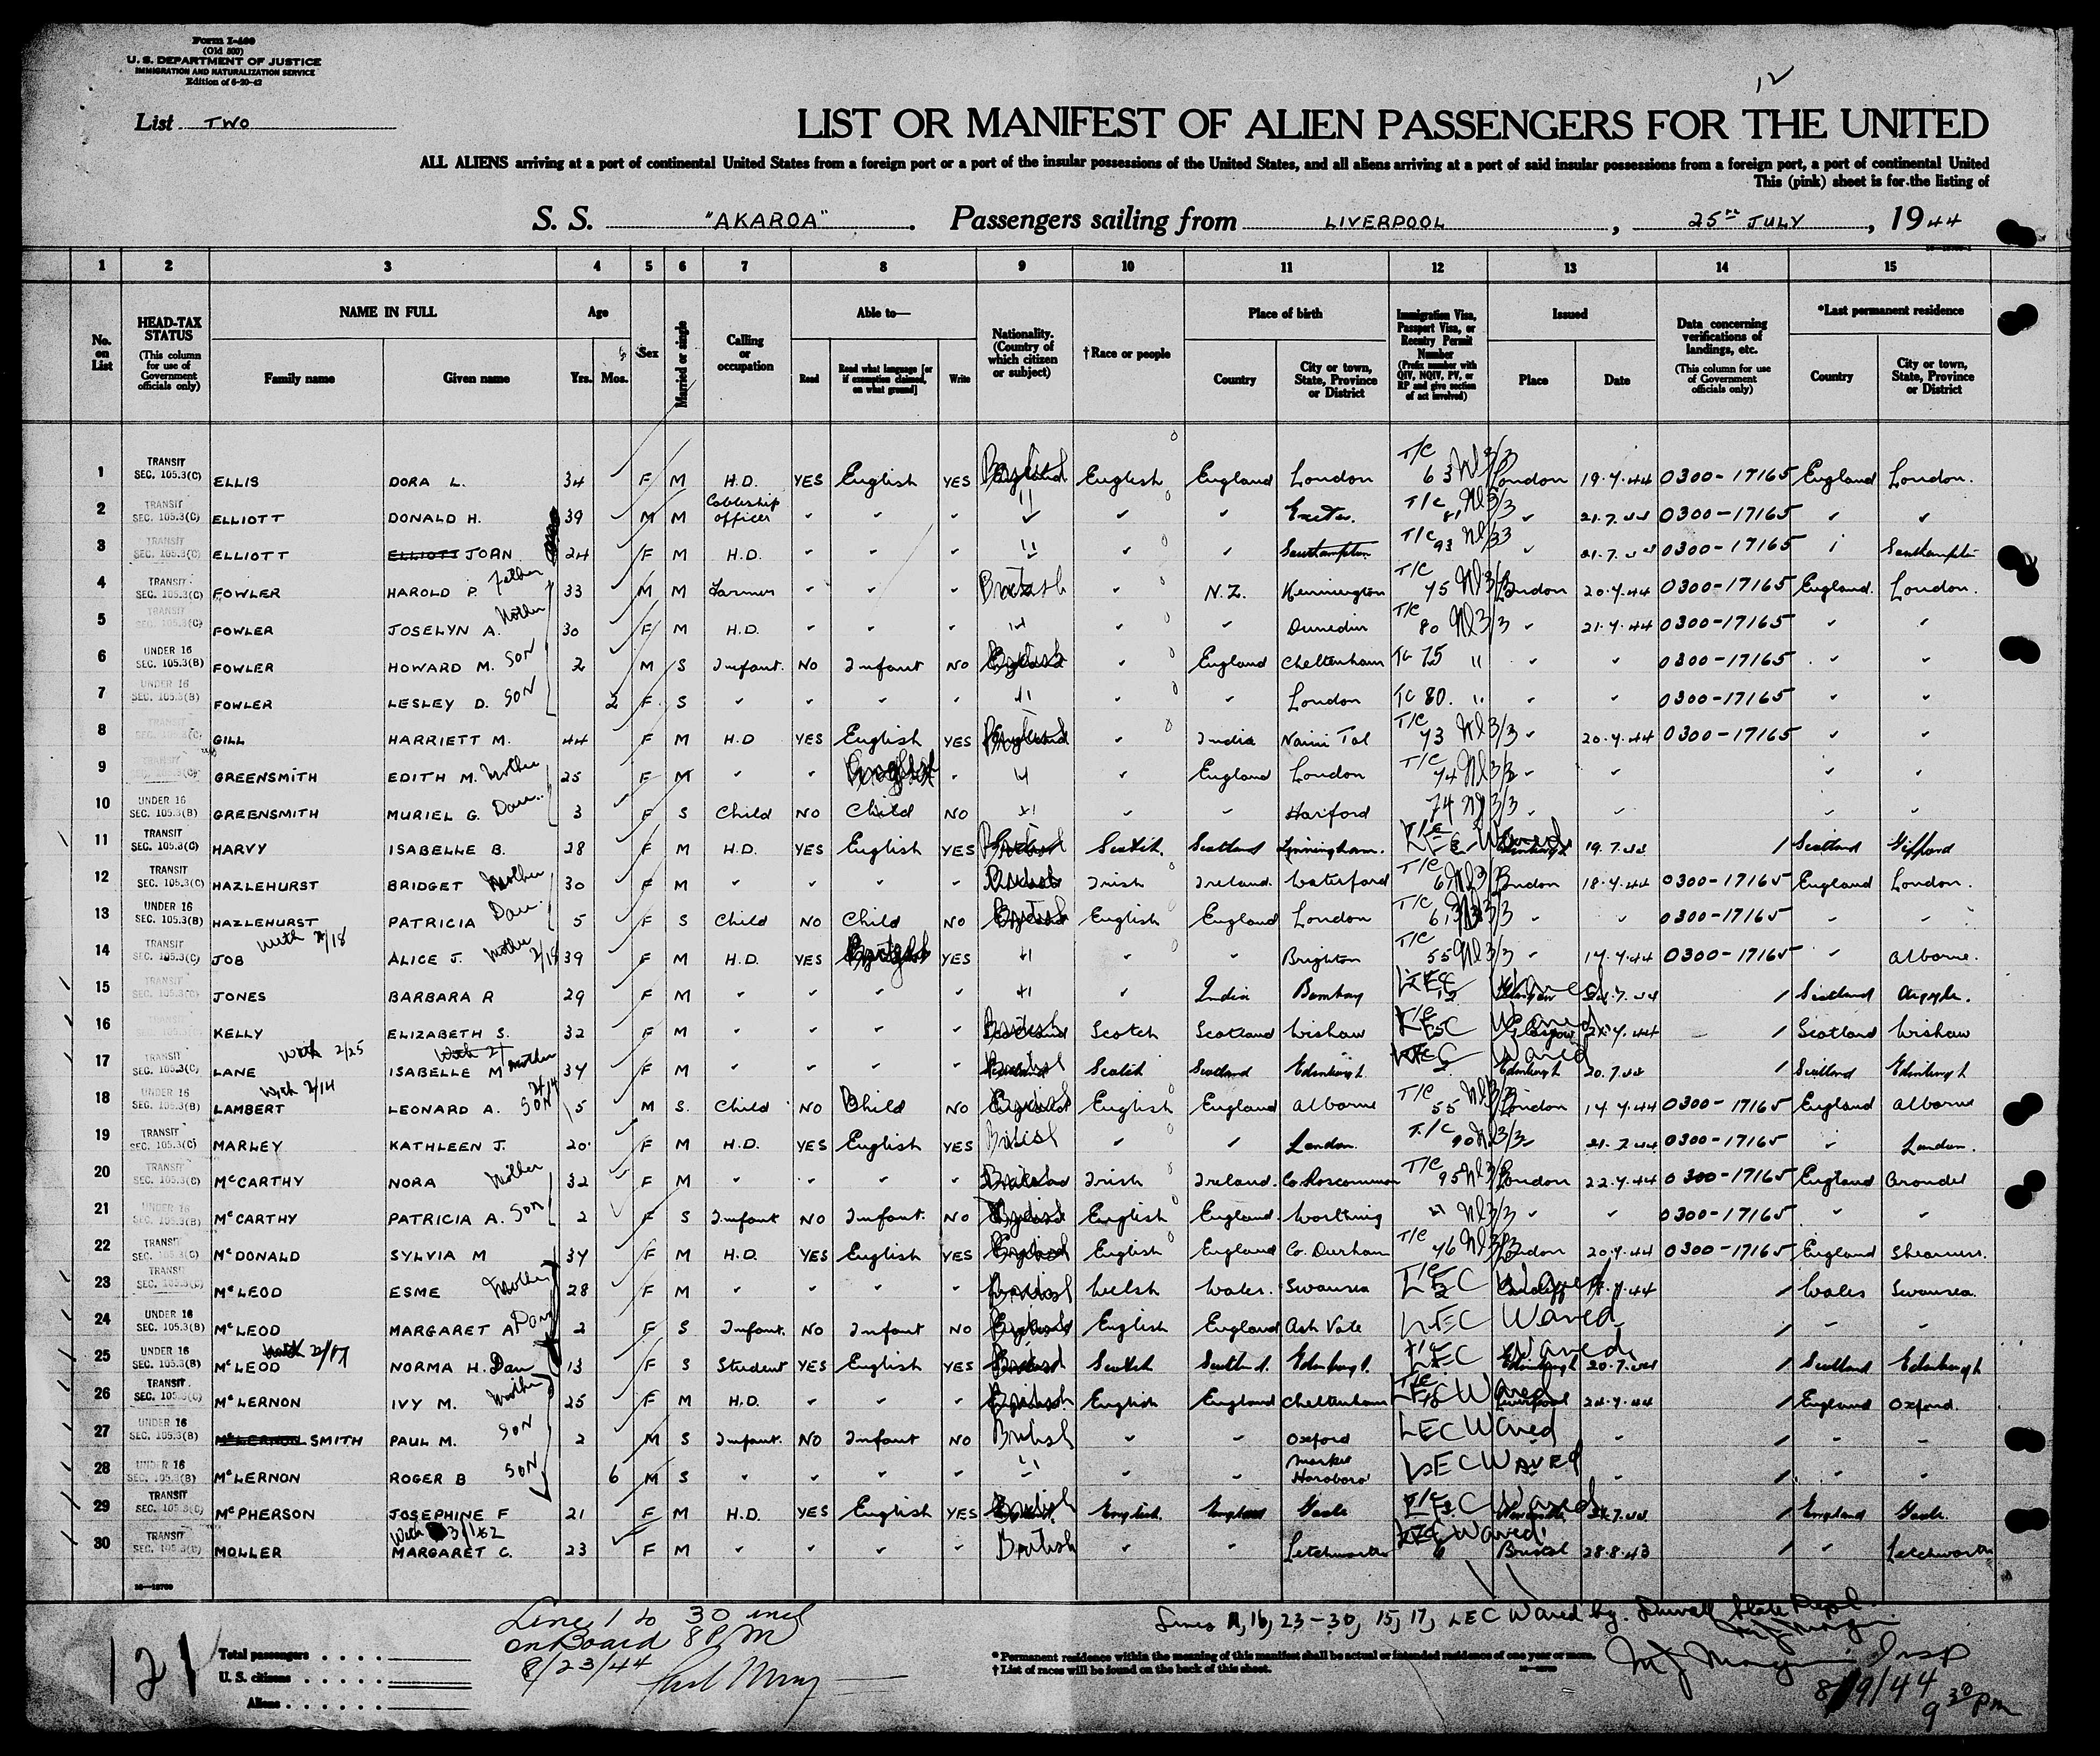 Form I-400
(Old 500)
U. S. DEPARTMENT OF JUSTICE
IMMIGRATION AND NATURALIZATION SERVICE
Edition of 6-20-42
12
List TWO
LIST OR MANIFEST OF ALIEN PASSENGERS FOR THE UNITED
ALL ALIENS arriving at a port of continental United States from a foreign port or a port of the insular possessions of the United States, and all aliens arriving at a port of said insular possessions from a foreign port, a port of continental United
This (pink) sheet is for the listing of
S. S. "AKAROA". Passengers sailing from LIVERPOOL, 25TH JULY, 1944
1 2 3 4 5 6 7 8 9 10 11 12 13 14 15
No. on List
HEAD-TAX STATUS
(This column for use of Government officials only)
NAME IN FULL
Family name Given name
Age
Yrs. Mos.
Sex
Married or single
Calling or occupation
Able to—
Read Read what language [or if exemption claimed, on what ground] Write
Nationality. (Country of which citizen or subject)
†Race or people
Place of birth
Country City or town, State, Province or District
Immigration Visa, Passport Visa, or Reentry Permit Number
(Prefix number with QIV, NQIV, PV, or RP and give section of act involved)
Issued
Place Date
Data concerning verifications of landings, etc.
(This column for use of Government officials only)
*Last permanent residence
Country City or town, State, Province or District
1 TRANSIT SEC. 105.3(C) ELLIS DORA L. 34 F M H.D. YES English YES British English England London T/C 63 London 19.7.44 0300-17165 England London.
2 TRANSIT SEC. 105.3(C) ELLIOTT DONALD H. 39 M M Cableship officer " Exeter. T/C 81 21.7.44 0300-17165
3 TRANSIT SEC. 105.3(C) ELLIOTT ELLIOTT JOAN 24 F M H.D. " Southampton T/C 93 21.7.44 0300-17165 Southampton
4 TRANSIT SEC. 105.3(C) FOWLER HAROLD P. Father 33 M M Farmer British N.Z. Kennington T/C 75 London 20.7.44 0300-17165 England. London.
5 SEC. 105.3(C) FOWLER JOSELYN A. Mother 30 F M H.D. " Dunedin T/C 80 21.7.44 0300-17165
6 UNDER 16 SEC. 105.3(B) FOWLER HOWARD M. SON 2 M S Infant. NO Infant NO British England Cheltenham TC 75 " 0300-17165
7 UNDER 16 SEC. 105.3(B) FOWLER LESLEY D. SON 2 F S " London TC 80. " 0300-17165
8 SEC. 105.3(C) GILL HARRIETT M. 44 F M H.D YES English YES British India Naini Tal T/C 73 20.7.44 0300-17165
9 TRANSIT SEC. 105.3(C) GREENSMITH EDITH M. Mother 25 F M " England London T/C 74
10 UNDER 16 SEC. 105.3(B) GREENSMITH MURIEL G. Dau. 3 F S Child NO Child NO " Harlford 74
11 TRANSIT SEC. 105.3(C) HARVY ISABELLE B. 28 F M H.D. YES English YES British Scotish. Scotland LEC Waved Edinburgh 19.7.44 Scotland Gifford
12 TRANSIT SEC. 105.3(C) HAZLEHURST BRIDGET Mother 30 F M British Irish Ireland. Waterford T/C London 18.7.44 0300-17165 England London.
13 UNDER 16 SEC. 105.3(B) HAZLEHURST PATRICIA Dau. 5 F S Child NO Child NO British English England London T/C 0300-17165
With 2/18
14 TRANSIT SEC. 105.3(C) JOB ALICE J. Mother 2/18 39 F M H.D. YES English YES " Brighton T/C 55 17.7.44 0300-17165 Alborne.
15 TRANSIT SEC. 105.3(C) JONES BARBARA R 29 F M " India Bombay LEC Waved Scotland Argyle.
16 TRANSIT SEC. 105.3(C) KELLY ELIZABETH S. 32 F M British Scotch Scotland Wishaw LEC Waved Glasgow Scotland Wishaw
With 2/25
17 TRANSIT SEC. 105.3(C) LANE ISABELLE M Mother 34 F M British Scotish Scotland Edinburgh LEC Waved Edinburgh 20.7.44 Scotland Edinburgh
With 2/14
18 UNDER 16 SEC. 105.3(B) LAMBERT LEONARD A. SON 2/14 5 M S. Child NO Child NO English England Alborne T/C 55 London 17.7.44 0300-17165 England Alborne
19 TRANSIT SEC. 105.3(C) MARLEY KATHLEEN J. 20 F M H.D. YES English YES British London. T/C 90 21.7.44 0300-17165 London.
20 TRANSIT SEC. 105.3(C) McCARTHY NORA Mother 32 F M Irish Ireland. Co. Roscommon T/C 95 London 22.7.44 0300-17165 England Arundel
21 UNDER 16 SEC. 105.3(B) McCARTHY PATRICIA A. SON 2 F S Infant NO Infant. NO British English England. Worthing " 0300-17165
22 TRANSIT SEC. 105.3(C) McDONALD SYLVIA M 34 F M H.D. YES English YES English England Co. Durham T/C 76 London 20.7.44 0300-17165 England Sheerness.
23 TRANSIT SEC. 105.3(C) McLEOD ESME Mother 28 F M British Welsh Wales. Swansea LEC Waved Cardiff Wales Swansea.
24 UNDER 16 SEC. 105.3(B) McLEOD MARGARET A Dau 2 F S Infant. NO Infant NO English England Ash Vale LEC Waved
With 2/17
25 UNDER 16 SEC. 105.3(B) McLEOD NORMA H. Dau 13 F S Student YES English YES British Scotish Scotland. Edinburgh. LEC Waved Edinburgh 20.7.44 Scotland Edinburgh
26 TRANSIT SEC. 105.3(C) McLERNON IVY M. Mother 25 F M H.D. British English England Cheltenham LEC Waved Liverpool 24.7.44 England Oxford.
27 UNDER 16 SEC. 105.3(B) McLERNON SMITH PAUL M. SON 2 M S Infant. NO Infant NO British Oxford LEC Waved
28 UNDER 16 SEC. 105.3(B) McLERNON ROGER B SON 6 M S " Market Harboro' LEC Waved
29 TRANSIT SEC. 105.3(C) McPHERSON JOSEPHINE F 21 F M H.D. YES English YES British English. England Goole LEC Waved Newcastle England Goole.
30 TRANSIT SEC. 105.3(C) MOLLER MARGARET C. 23 F M British Letchworth LEC Waved Bristol 28.8.43 Letchworth
16—13700
Line 1 to 30 incl
on Board 8 P M
8/23/44
121
Total passengers
U. S. citizens
Aliens
Lines 11, 16, 23-30, 15, 17, LEC Waved by State Dept.
* Permanent residence within the meaning of this manifest shall be actual or intended residence of one year or more.
† List of races will be found on the back of this sheet.
Insp
8/19/44
9 30 PM